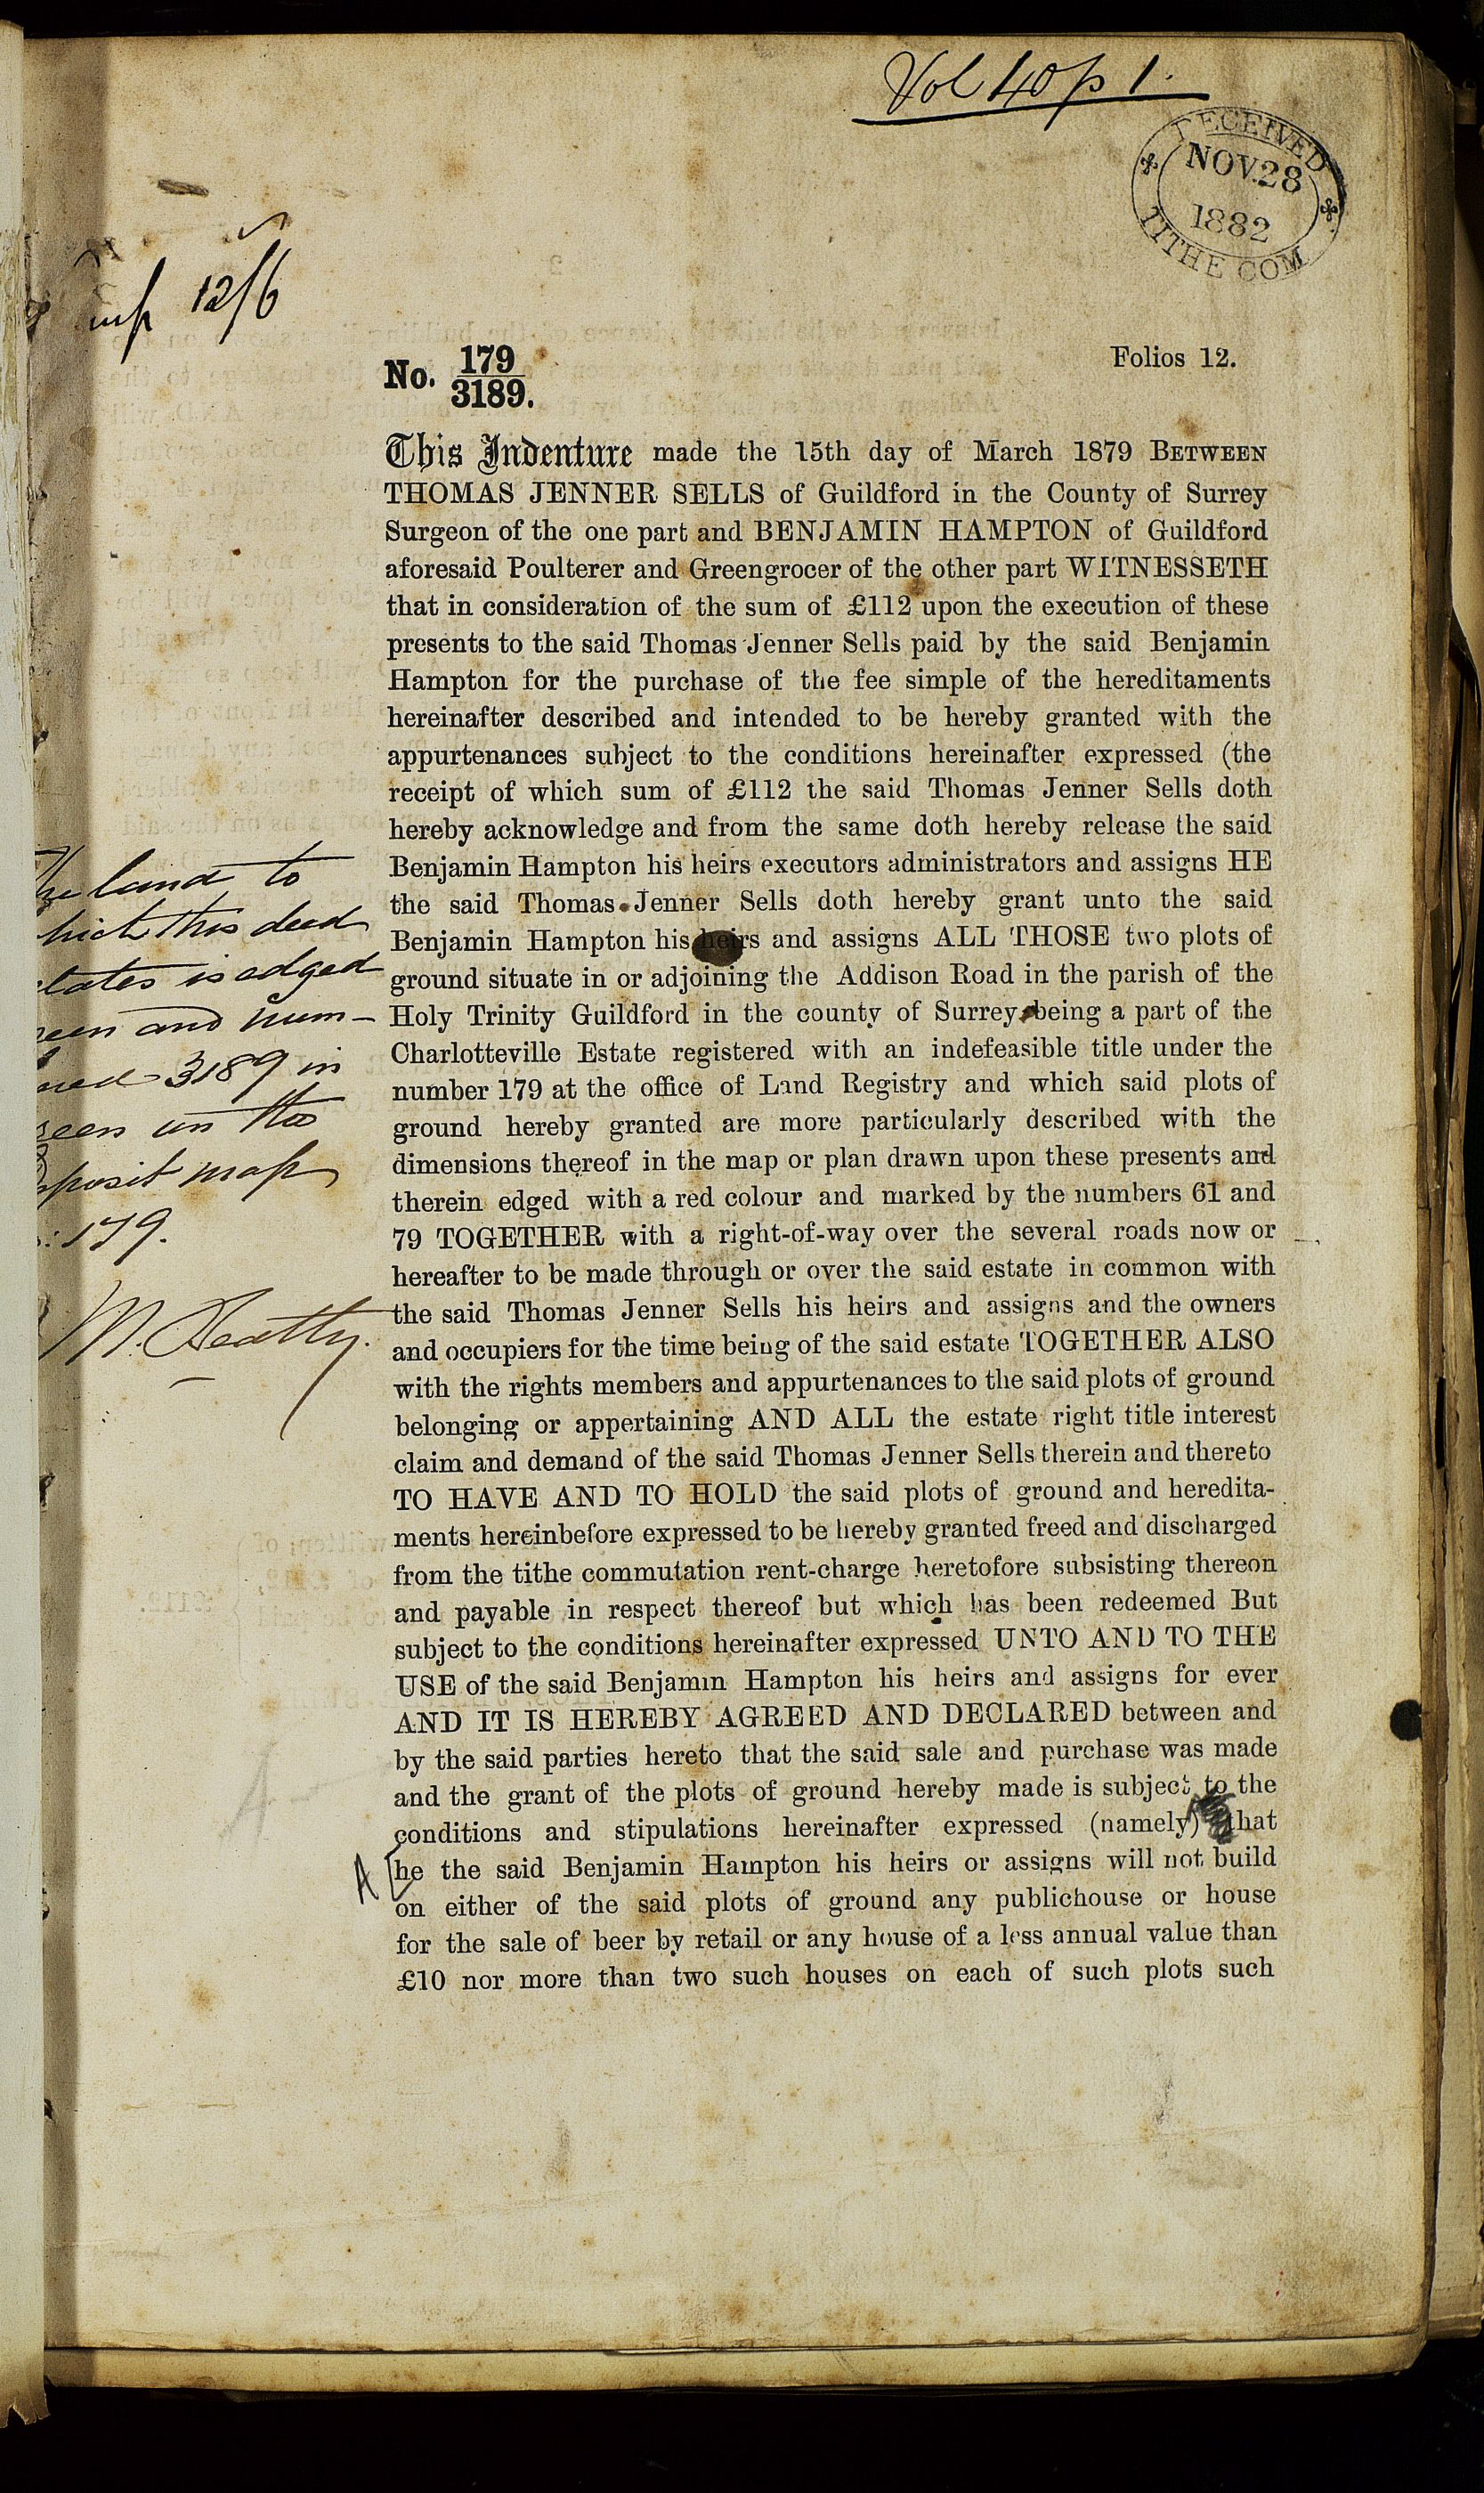 Vol 40 p 1.
RECEIVED
NOV.28
1882
TITHE COM
12/6
No. 179
3189.
Folios 12.
This Indenture made the 15th day of March 1879 BETWEEN
THOMAS JENNER SELLS of Guildford in the County of Surrey
Surgeon of the one part and BENJAMIN HAMPTON of Guildford
aforesaid Poulterer and Greengrocer of the other part WITNESSETH
that in consideration of the sum of £112 upon the execution of these
presents to the said Thomas Jenner Sells paid by the said Benjamin
Hampton for the purchase of the fee simple of the hereditaments
hereinafter described and intended to be hereby granted with the
appurtenances subject to the conditions hereinafter expressed (the
receipt of which sum of £112 the said Thomas Jenner Sells doth
hereby acknowledge and from the same doth hereby release the said
Benjamin Hampton his heirs executors administrators and assigns HE
the said Thomas Jenner Sells doth hereby grant unto the said
Benjamin Hampton his heirs and assigns ALL THOSE two plots of
ground situate in or adjoining the Addison Road in the parish of the
Holy Trinity Guildford in the county of Surrey being a part of the
Charlotteville Estate registered with an indefeasible title under the
number 179 at the office of Land Registry and which said plots of
ground hereby granted are more particularly described with the
dimensions thereof in the map or plan drawn upon these presents and
therein edged with a red colour and marked by the numbers 61 and
79 TOGETHER with a right-of-way over the several roads now or
hereafter to be made through or over the said estate in common with
the said Thomas Jenner Sells his heirs and assigns and the owners
and occupiers for the time being of the said estate TOGETHER ALSO
with the rights members and appurtenances to the said plots of ground
belonging or appertaining AND ALL the estate right title interest
claim and demand of the said Thomas Jenner Sells therein and thereto
TO HAVE AND TO HOLD the said plots of ground and heredita-
ments hereinbefore expressed to be hereby granted freed and discharged
from the tithe commutation rent-charge heretofore subsisting thereon
and payable in respect thereof but which has been redeemed But
subject to the conditions hereinafter expressed UNTO AND TO THE
USE of the said Benjamin Hampton his heirs and assigns for ever
AND IT IS HEREBY AGREED AND DECLARED between and
by the said parties hereto that the said sale and purchase was made
and the grant of the plots of ground hereby made is subject to the
conditions and stipulations hereinafter expressed (namely) that
A [he the said Benjamin Hampton his heirs or assigns will not build
on either of the said plots of ground any publichouse or house
for the sale of beer by retail or any house of a less annual value than
£10 nor more than two such houses on each of such plots such
land to
this deed
is edged
and num-
3189 in
on the
map
179.
A